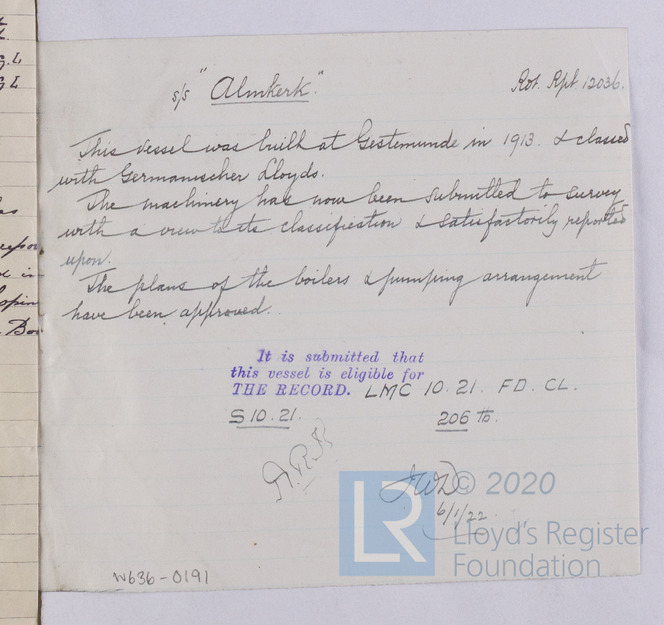 s/s "Almkerk". Rot. Rpt. 12036.
This vessel was built at Gestemunde in 1913. & classed
with Germanischer Lloyds.
The machinery has now been submitted to survey
with a view to its classification & satisfactorily reported
upon.
The plans of the boilers & pumping arrangement
have been approved.
It is submitted that
this vessel is eligible for
THE RECORD. LMC 10.21. FD. CL.
S 10.21. 206 lb.
JWD
6/1/22
W636-0191
LR
© 2020
Lloyd's Register
Foundation